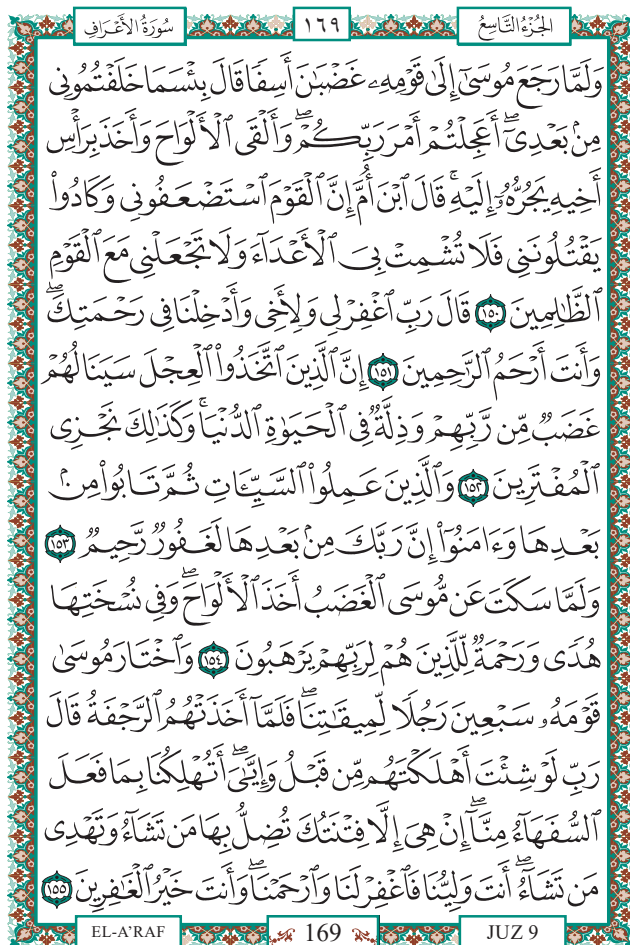 سُورَةُ الأَعْرَافِ ١٦٩ الجُزْءُ التَّاسِعُ
وَلَمَّا رَجَعَ مُوسَىٰٓ إِلَىٰ قَوْمِهِۦ غَضْبَٰنَ أَسِفًا قَالَ بِئْسَمَا خَلَفْتُمُونِى
مِنۢ بَعْدِىٓۖ أَعَجِلْتُمْ أَمْرَ رَبِّكُمْۖ وَأَلْقَى ٱلْأَلْوَاحَ وَأَخَذَ بِرَأْسِ
أَخِيهِ يَجُرُّهُۥٓ إِلَيْهِۚ قَالَ ٱبْنَ أُمَّ إِنَّ ٱلْقَوْمَ ٱسْتَضْعَفُونِى وَكَادُوا۟
يَقْتُلُونَنِى فَلَا تُشْمِتْ بِىَ ٱلْأَعْدَآءَ وَلَا تَجْعَلْنِى مَعَ ٱلْقَوْمِ
ٱلظَّٰلِمِينَ ١٥٠ قَالَ رَبِّ ٱغْفِرْ لِى وَلِأَخِى وَأَدْخِلْنَا فِى رَحْمَتِكَۖ
وَأَنتَ أَرْحَمُ ٱلرَّٰحِمِينَ ١٥١ إِنَّ ٱلَّذِينَ ٱتَّخَذُوا۟ ٱلْعِجْلَ سَيَنَالُهُمْ
غَضَبٌ مِّن رَّبِّهِمْ وَذِلَّةٌ فِى ٱلْحَيَوٰةِ ٱلدُّنْيَاۚ وَكَذَٰلِكَ نَجْزِى
ٱلْمُفْتَرِينَ ١٥٢ وَٱلَّذِينَ عَمِلُوا۟ ٱلسَّيِّـَٔاتِ ثُمَّ تَابُوا۟ مِنۢ
بَعْدِهَا وَءَامَنُوٓا۟ إِنَّ رَبَّكَ مِنۢ بَعْدِهَا لَغَفُورٌ رَّحِيمٌ ١٥٣
وَلَمَّا سَكَتَ عَن مُّوسَى ٱلْغَضَبُ أَخَذَ ٱلْأَلْوَاحَۖ وَفِى نُسْخَتِهَا
هُدًى وَرَحْمَةٌ لِّلَّذِينَ هُمْ لِرَبِّهِمْ يَرْهَبُونَ ١٥٤ وَٱخْتَارَ مُوسَىٰ
قَوْمَهُۥ سَبْعِينَ رَجُلًا لِّمِيقَٰتِنَاۖ فَلَمَّآ أَخَذَتْهُمُ ٱلرَّجْفَةُ قَالَ
رَبِّ لَوْ شِئْتَ أَهْلَكْتَهُم مِّن قَبْلُ وَإِيَّٰىَۖ أَتُهْلِكُنَا بِمَا فَعَلَ
ٱلسُّفَهَآءُ مِنَّآۖ إِنْ هِىَ إِلَّا فِتْنَتُكَ تُضِلُّ بِهَا مَن تَشَآءُ وَتَهْدِى
مَن تَشَآءُۖ أَنتَ وَلِيُّنَا فَٱغْفِرْ لَنَا وَٱرْحَمْنَاۖ وَأَنتَ خَيْرُ ٱلْغَٰفِرِينَ ١٥٥
EL-A'RAF 169 JUZ 9